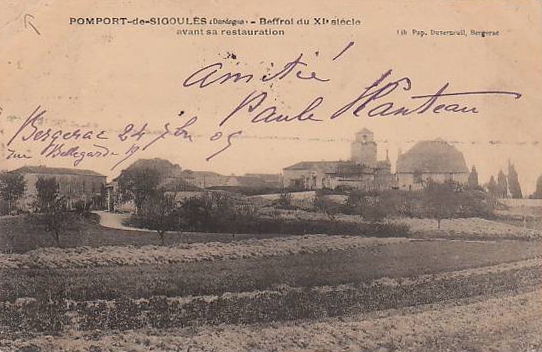 POMPORT-de-SIGOULÈS (Dordogne) - Beffroi du XIe siècle
avant sa restauration
Lib Pap. Duverneuil, Bergerac
Amitié
Paule Hanteau
Bergerac 24 7bre 05
rue Bellegarde